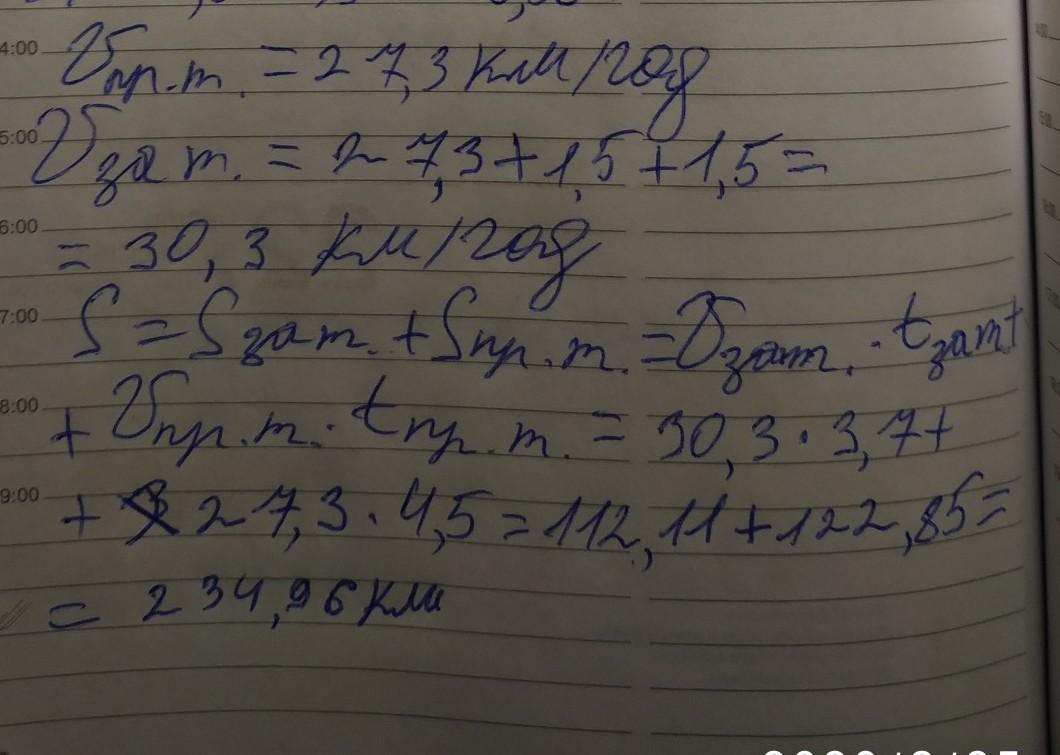 4:00 Vпр.т. = 27,3 км/год
5:00 Vза т. = 27,3+1,5+1,5=
6:00 = 30,3 км/год
7:00 S = Sзат. + Sпр.т. = Vзат. · tзат+
8:00 + Vпр.т. · tпр.т. = 30,3 · 3,7+
9:00 + 27,3 · 4,5 = 112,11 + 122,85=
= 234,96 км